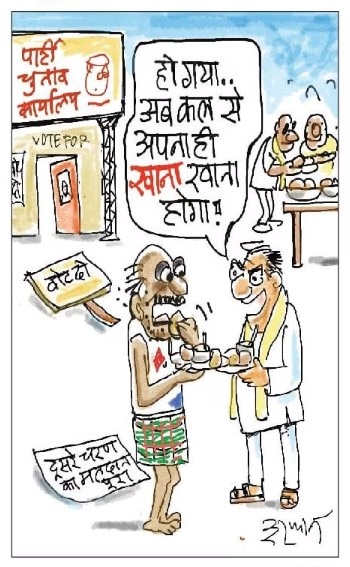 पार्टी
चुनाव
कार्यालय
VOTE FOR
हो गया..
अब कल से
अपना ही
खाना खाना
होगा!!
वोट दो
दूसरे चरण
का मतदान
पूरा